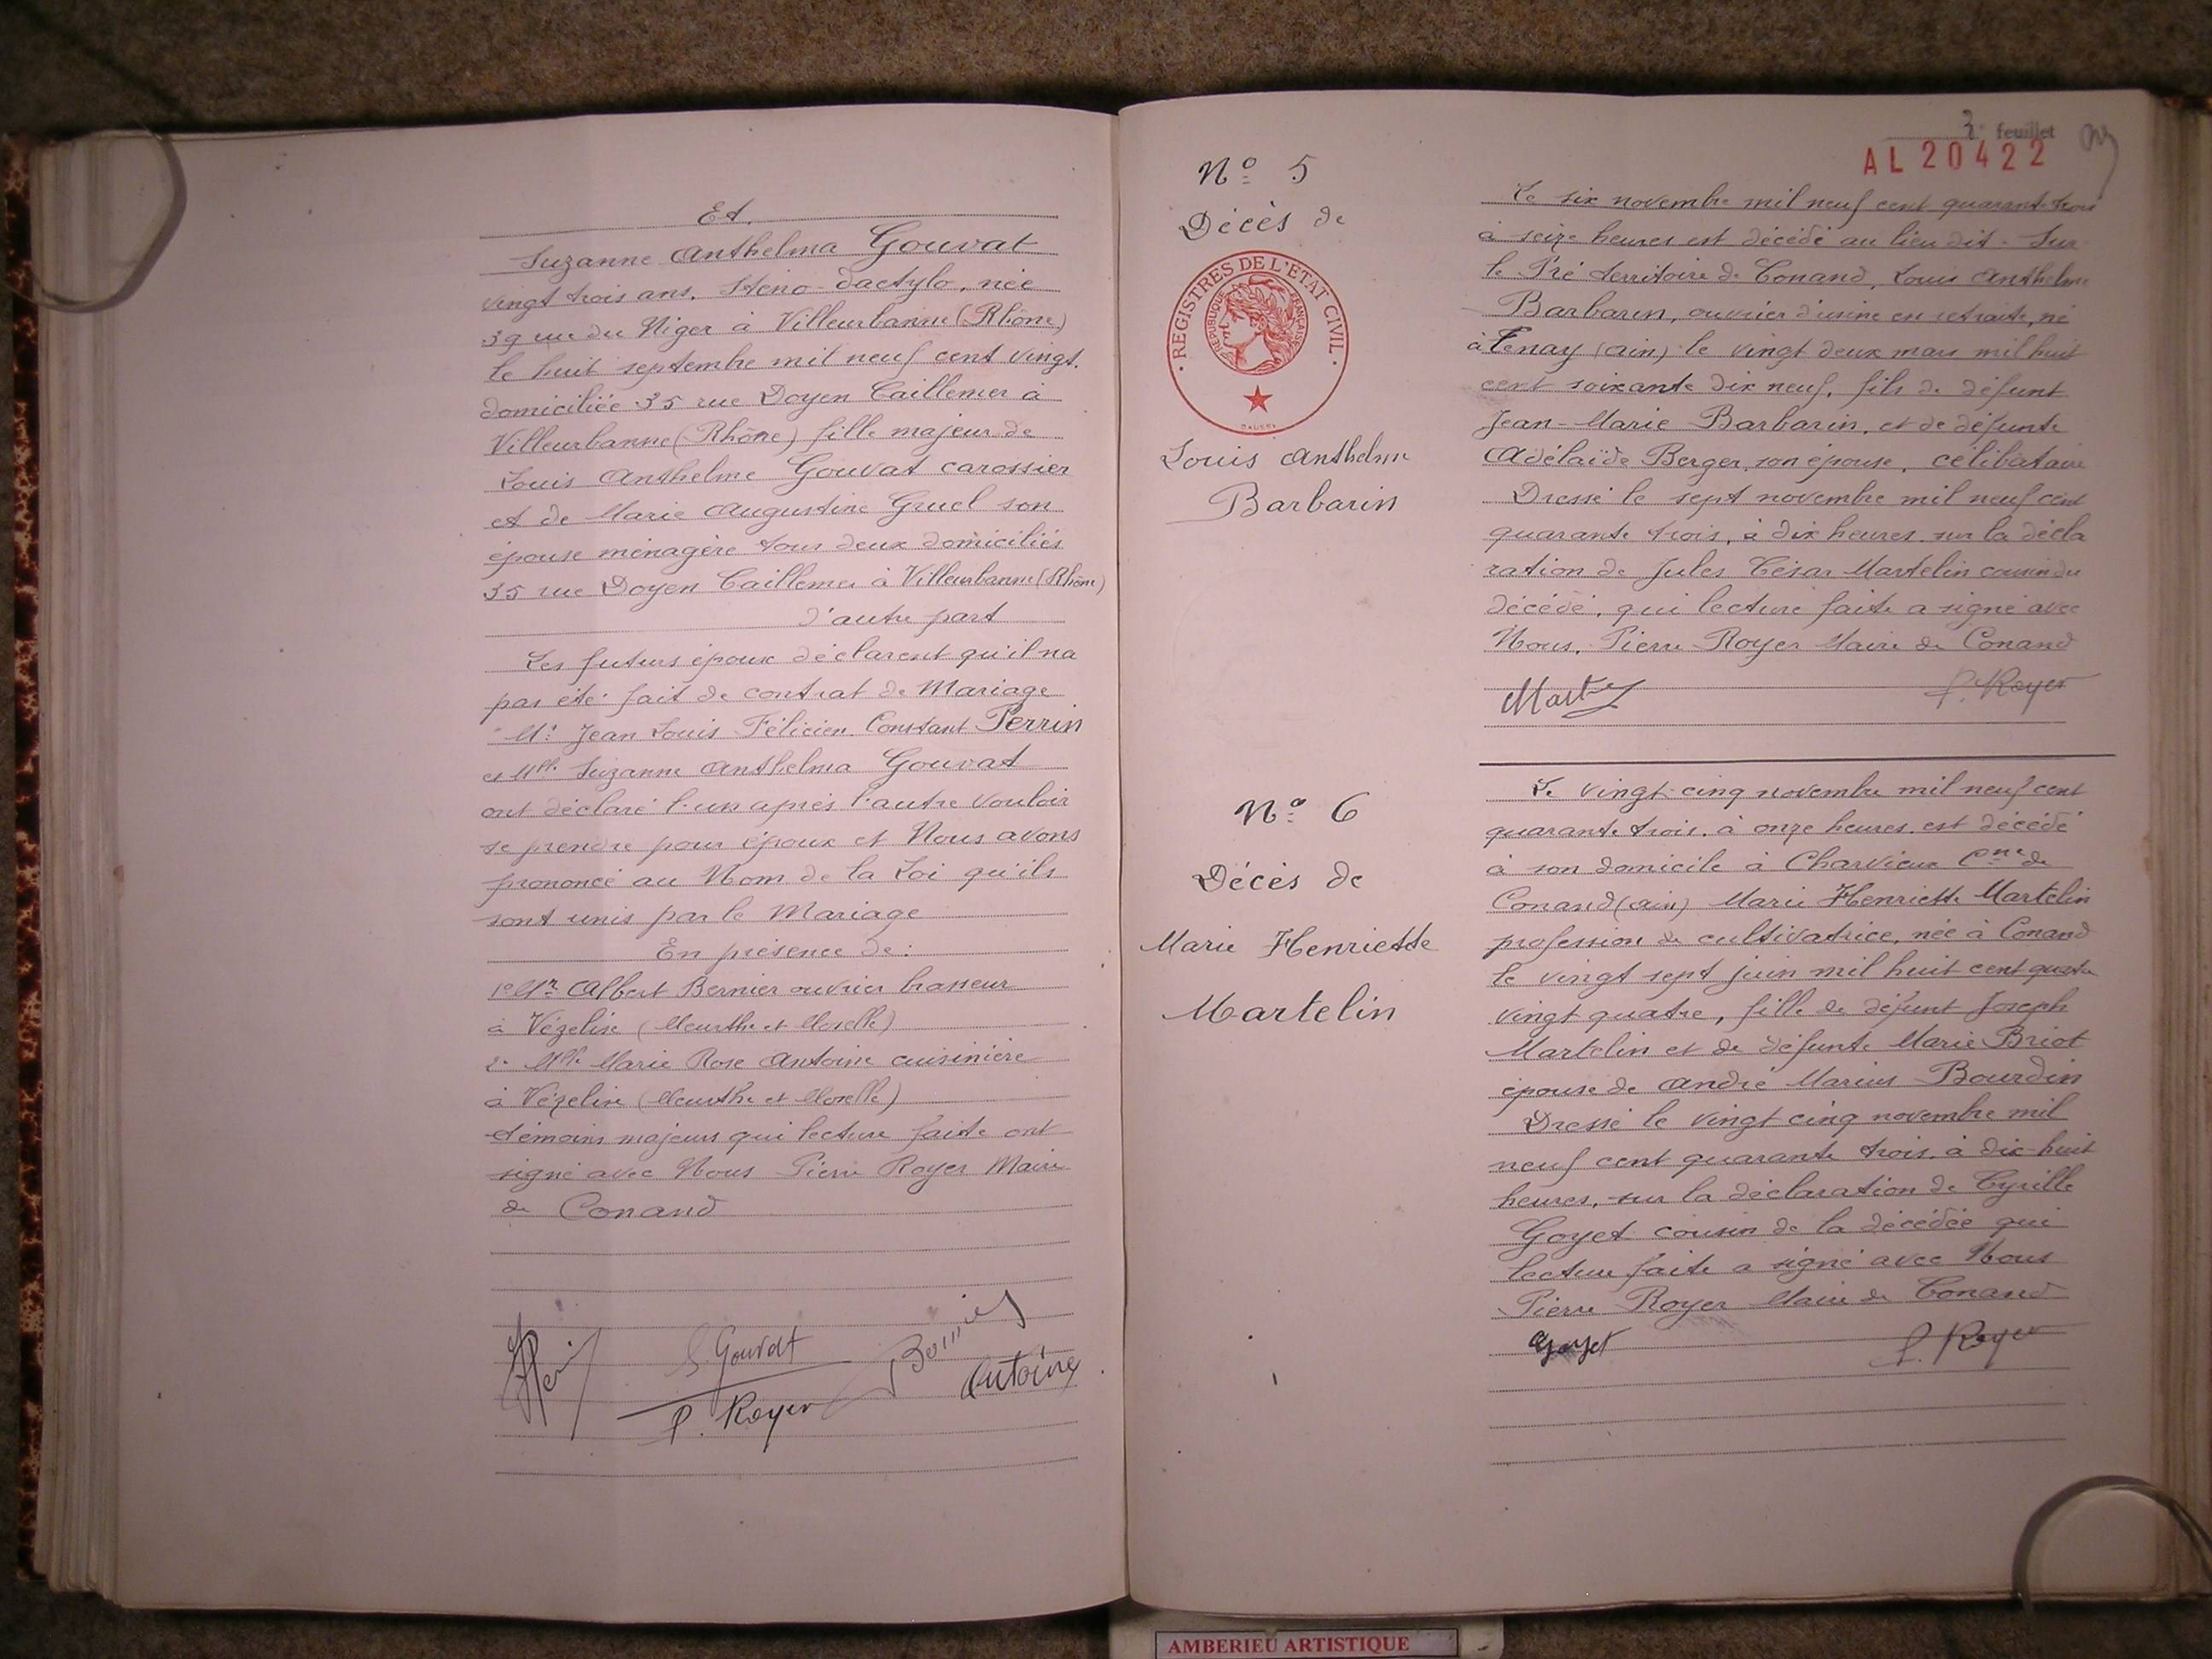 Et.
Suzanne Anthelma Gouvat
vingt trois ans, sténo-dactylo, née
39 rue du Niger à Villeurbanne (Rhône)
le huit septembre mil neuf cent vingt.
domiciliée 35 rue Doyen Caillemer à
Villeurbanne (Rhône) fille majeur de
Louis Anthelme Gouvat carossier
et de Marie Augustine Gruel son
épouse ménagère tous deux domiciliés
35 rue Doyen Caillemer à Villeurbanne (Rhône)
d'autre part
Les futurs époux déclarent qu'il na
pas été fait de contrat de Mariage
Mr Jean Louis Félicien Constant Perrin
et Mlle Suzanne Anthelma Gouvat
ont déclaré l'un après l'autre vouloir
se prendre pour époux et Nous avons
prononcé au Nom de la Loi qu'ils
sont unis par le Mariage
En présence de:
1e Mr Albert Bernier ouvrier brasseur
à Vézelise (Meurthe et Moselle)
2e Mlle Marie Rose Antoine cuisinière
à Vézelise (Meurthe et Moselle)
témoins majeurs qui lecture faite ont
signé avec Nous Pierre Royer Maire
de Conand
S. Gouvat
Bernier
Antoine
P. Royer
3e feuillet
AL 20422
No 5
Décès de
REGISTRES DE L'ETAT CIVIL
REPUBLIQUE FRANÇAISE
Louis Anthelme
Barbarin
Le six novembre mil neuf cent quarante trois
à seize heures est décédé au lieu dit. Sur
le Pré territoire de Conand, Louis Anthelme
Barbarin, ouvrier d'usine en retraite, né
à Tenay (ain) le vingt deux mars mil huit
cent soixante dix neuf, fils de défunt
Jean-Marie Barbarin, et de défunte
Adélaïde Berger, son épouse, célibataire
Dressé le sept novembre mil neuf cent
quarante trois, à dix heures sur la décla
ration de Jules César Martelin cousin du
décédé, qui lecture faite a signé avec
Nous, Pierre Royer Maire de Conand
P. Royer
No 6
Décès de
Marie Henriette
Martelin
Le vingt-cinq novembre mil neuf cent
quarante trois. à onze heures. est décédé
à son domicile à Charvieux Cne de
Conand (ain) Marie Henriette Martelin
profession de cultivatrice, née à Conand
le vingt sept juin mil huit cent quatre
vingt quatre, fille de défunt Joseph
Martelin et de défunte Marie Briot
épouse de André Marius Bourdin
Dressé le vingt cinq novembre mil
neuf cent quarante trois. à dix-huit
heures, sur la déclaration de Cyrille
Goyet cousin de la décédée qui
lecture faite a signé avec Nous
Pierre Royer Maire de Conand
Goyet
P. Royer
AMBERIEU ARTISTIQUE